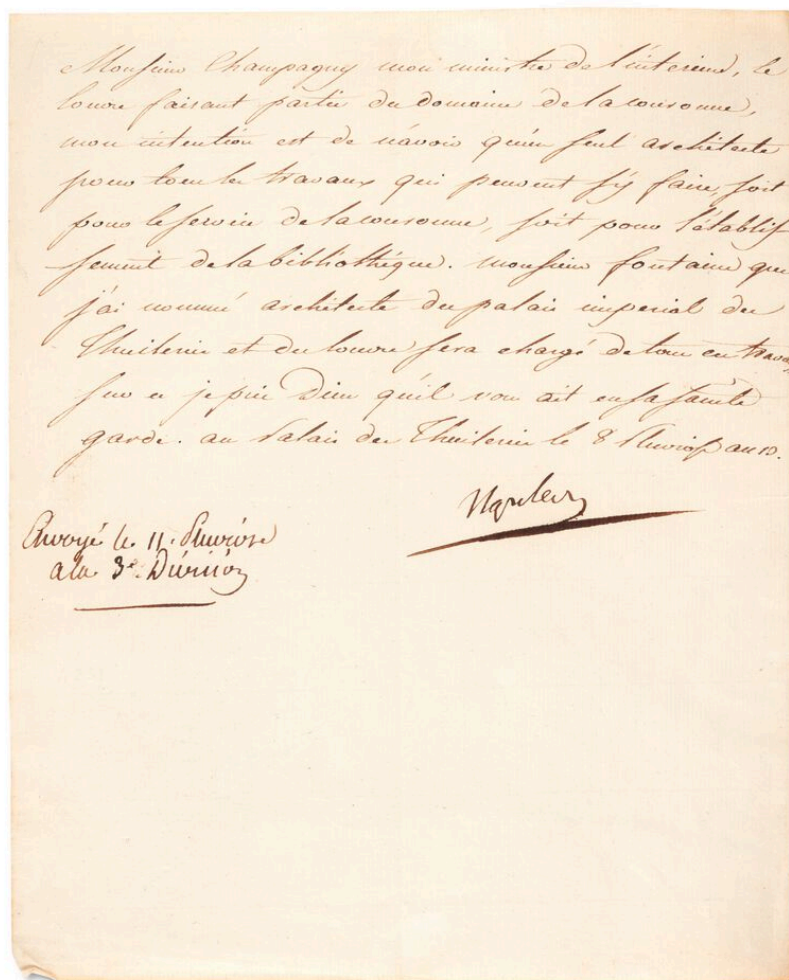 Monsieur Champagny mon ministre de l'interieur, le
louvre faisant partie du domaine de la couronne,
mon intention est de n'avoir qu'un seul architecte
pour tous les travaux qui peuvent s'y faire, soit
pour le service de la couronne, soit pour l'établis
sement de la bibliothéque. monsieur fontaine que
j'ai nommé architecte du palais imperial des
Thuileries et du louvre sera chargé de tous ces travaux,
sur ce je prie Dieu qu'il vous ait en sa sainte
garde. au Palais des Thuileries le 8 Pluviose an 13.
Napoleon
Envoyé le 11. Pluviôse
a la 3e. Division